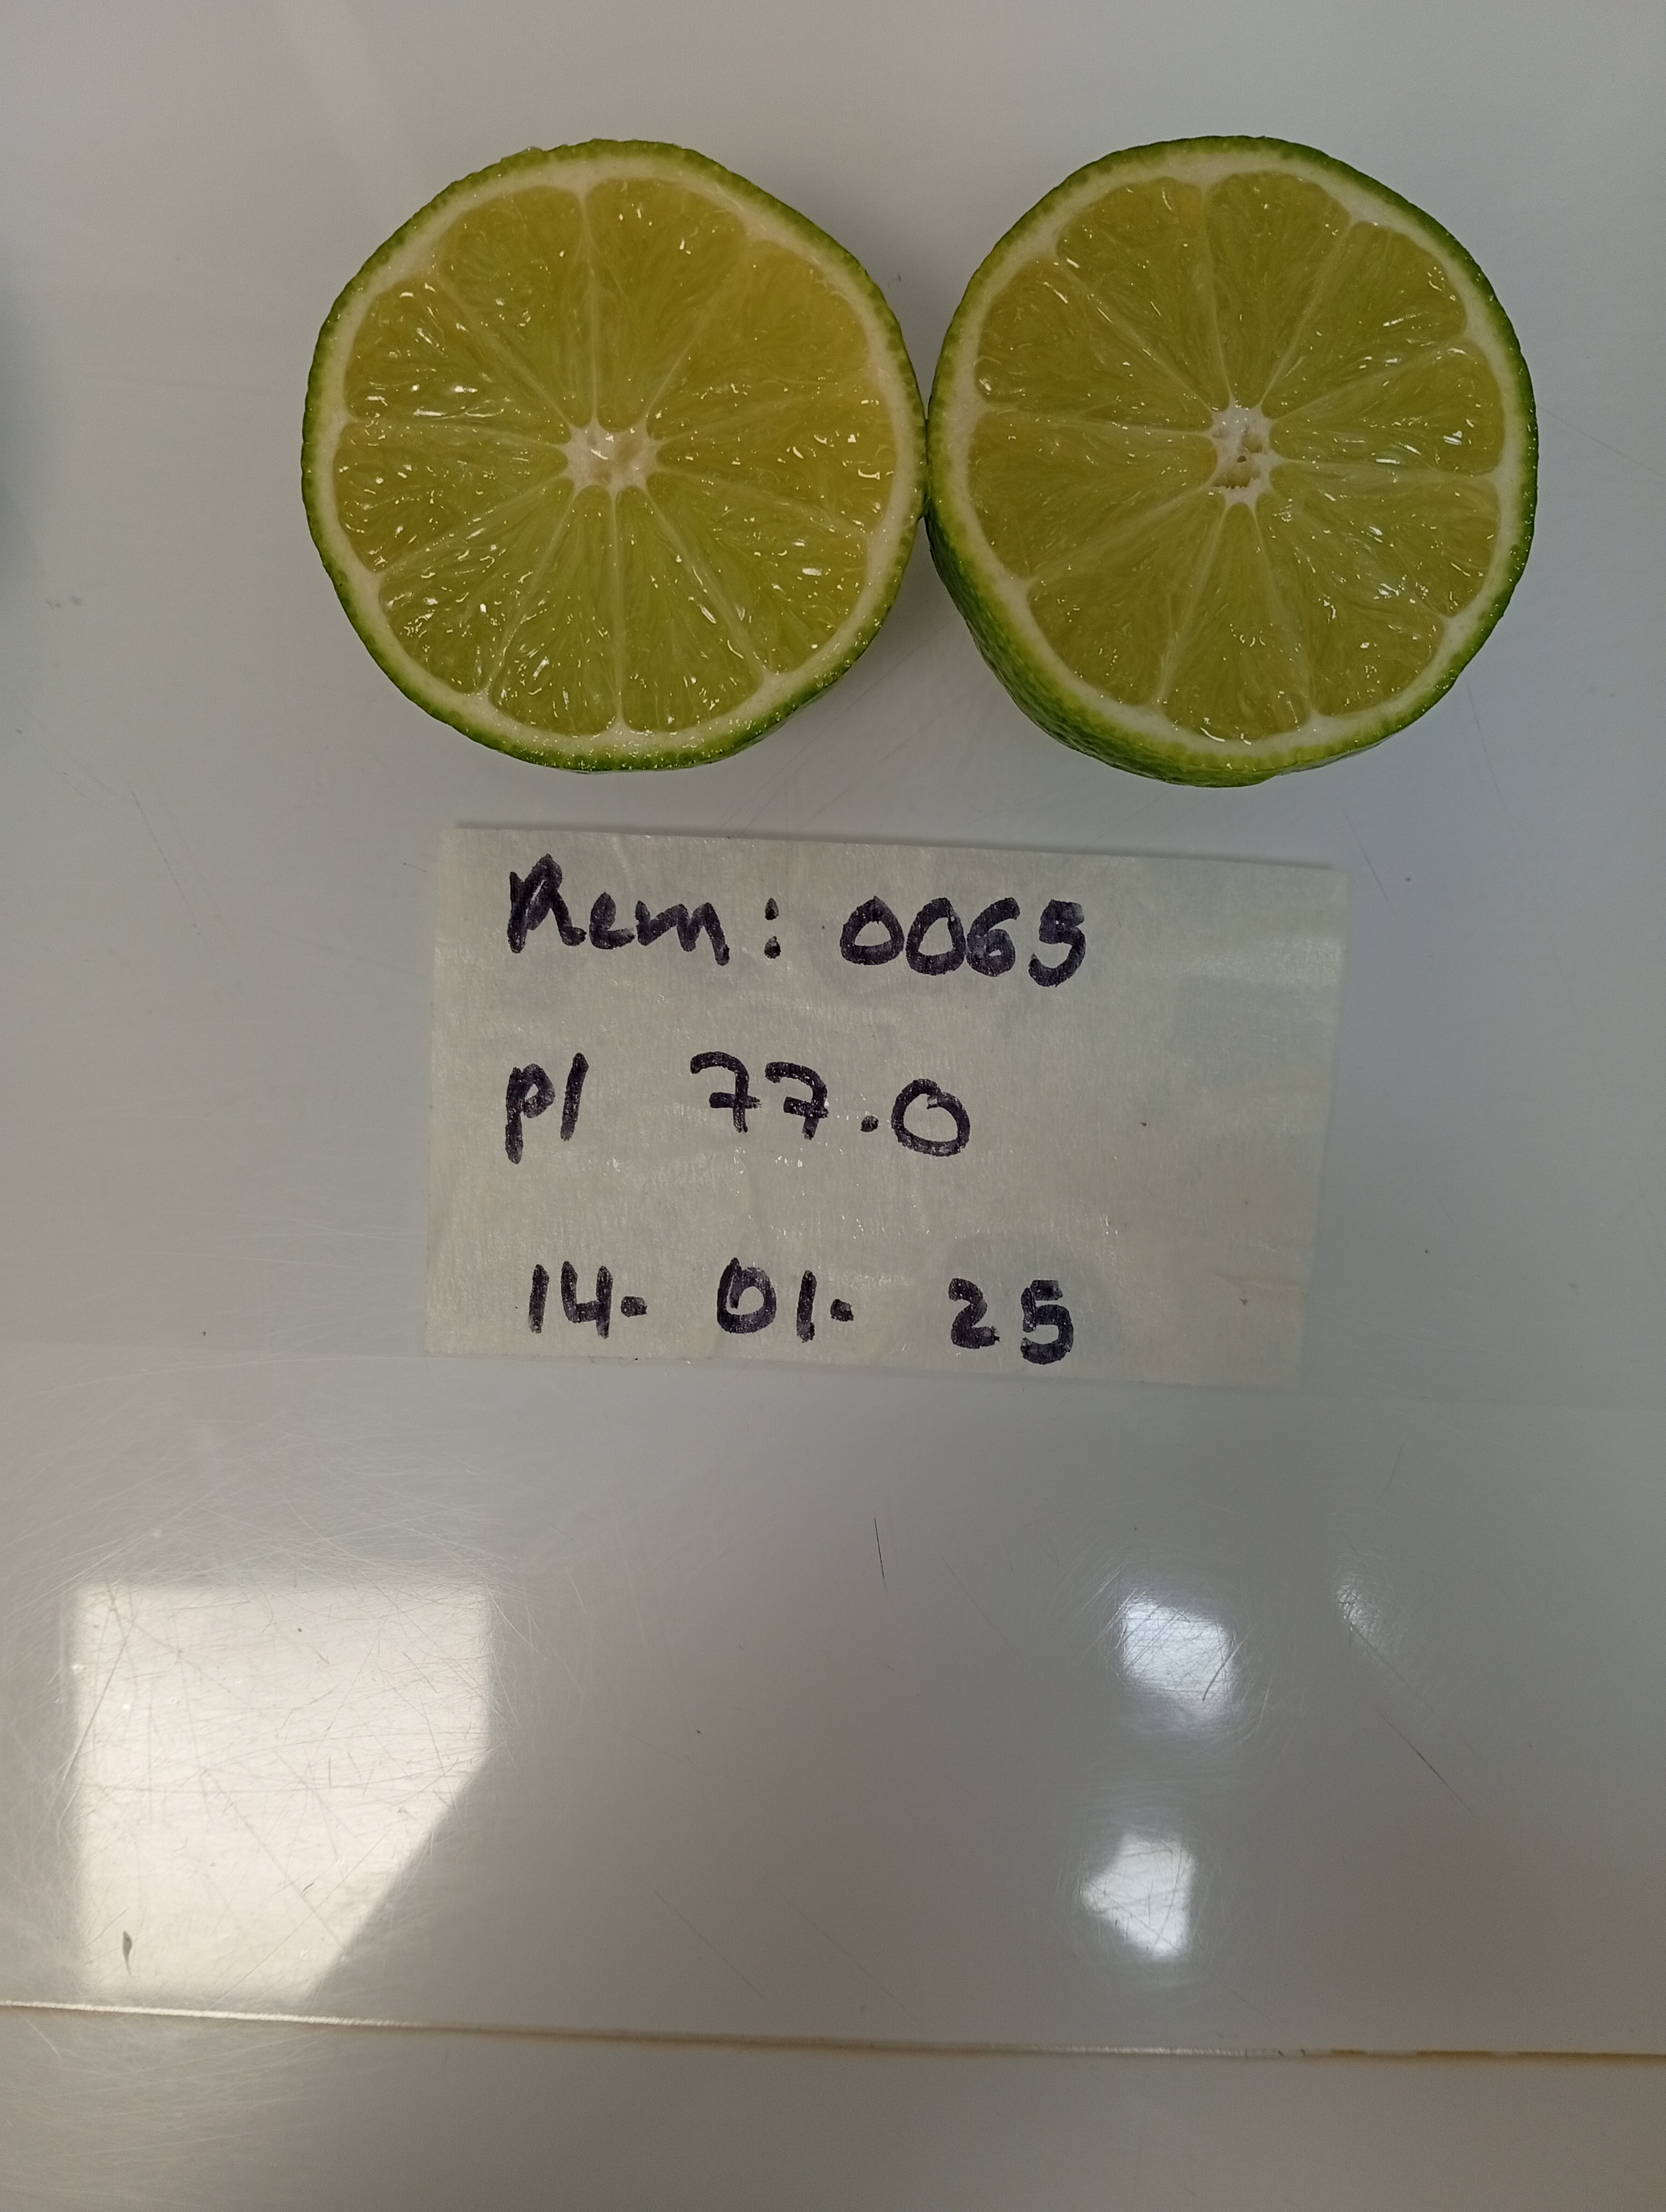 Rem: 0065
pl 77.0
14. 01. 25